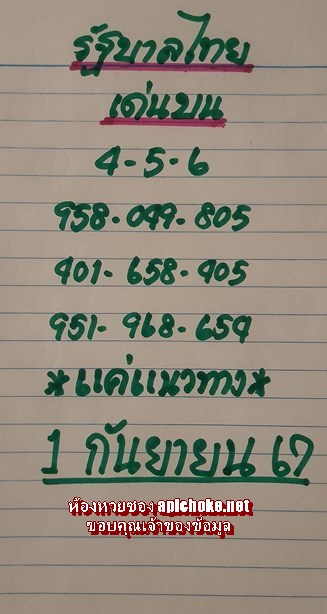 รัฐบาลไทย
เด่นบน
4-5-6
958-049-805
401-658-405
951-968-654
*แค่แนวทาง*
1 กันยายน ๖๗
ห้องหวยซอง apichoke.net
ขอบคุณเจ้าของข้อมูล